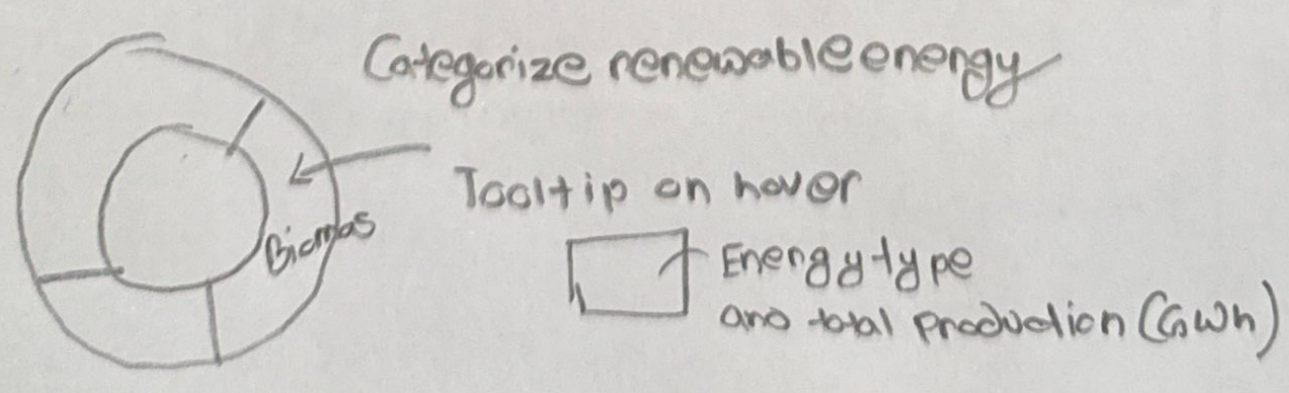 Categorize renewable energy
Tooltip on hover
Biomas
Energy type
and total production (GWh)